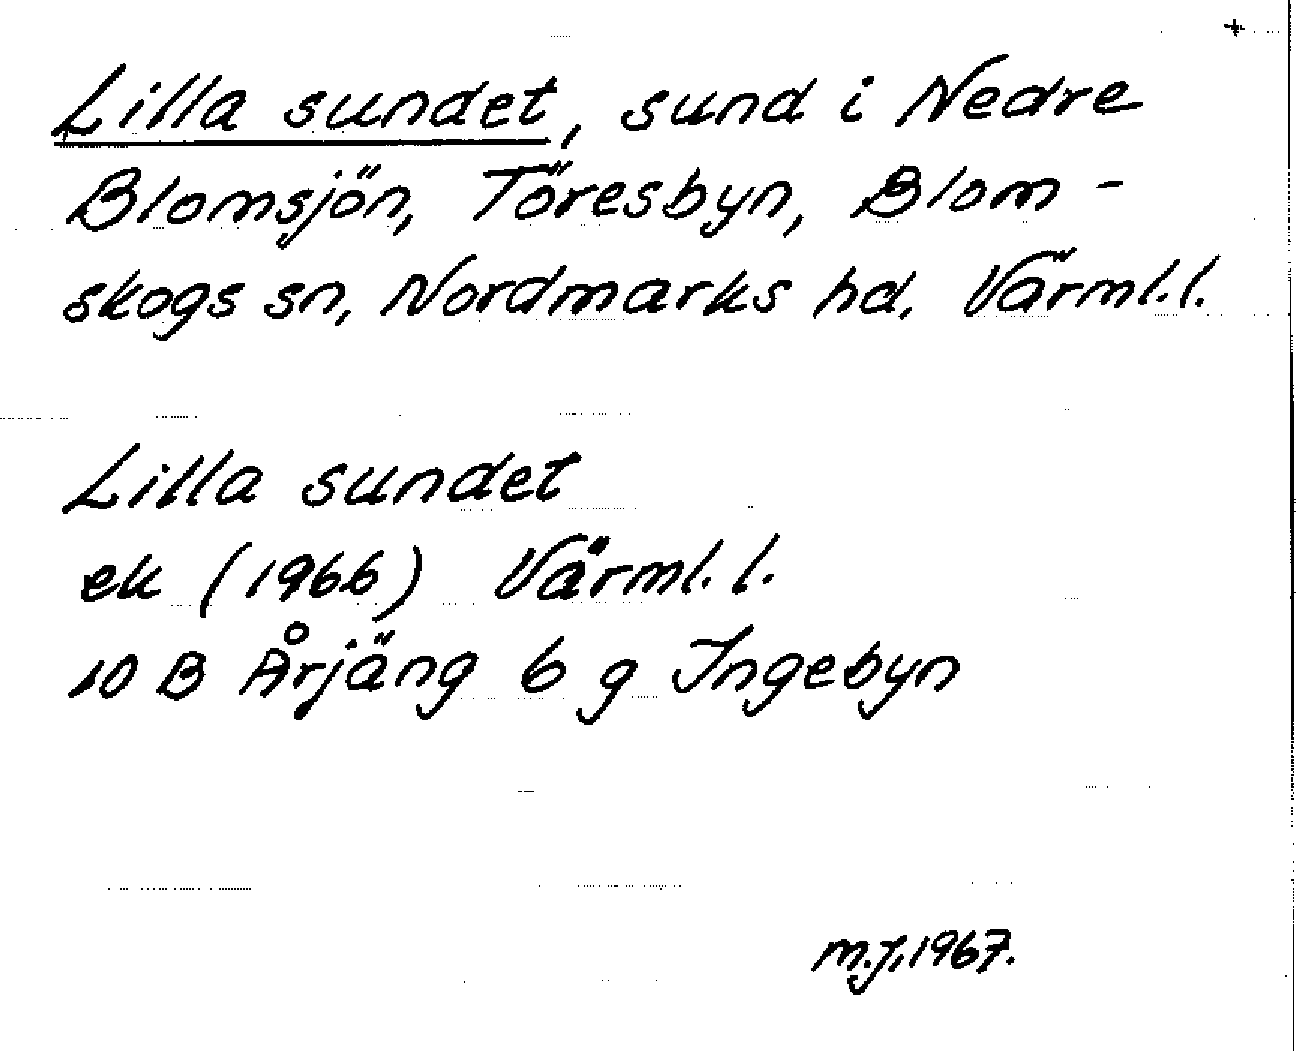 +
Lilla sundet, sund i Nedre
Blomsjön, Töresbyn, Blom-
skogs sn, Nordmarks hd. Värml.l.
Lilla sundet
ek (1966) Värml. l.
10 B Årjäng 6 g Ingebyn
M.J. 1967.